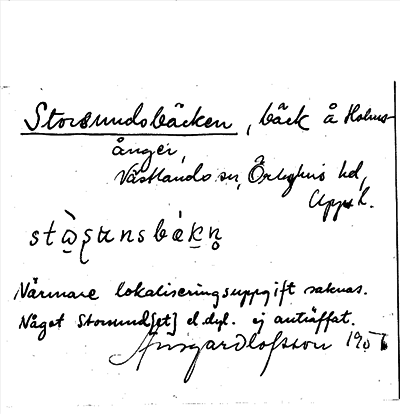 Storsundsbäcken, bäck å Holms-
ånger,
Västlands sn, Örbyhus hd,
Upps. l.
Närmare lokaliseringsuppgift saknas.
Något Storsund[et] el. dyl. ej anträffat.
Ansgard Olsson